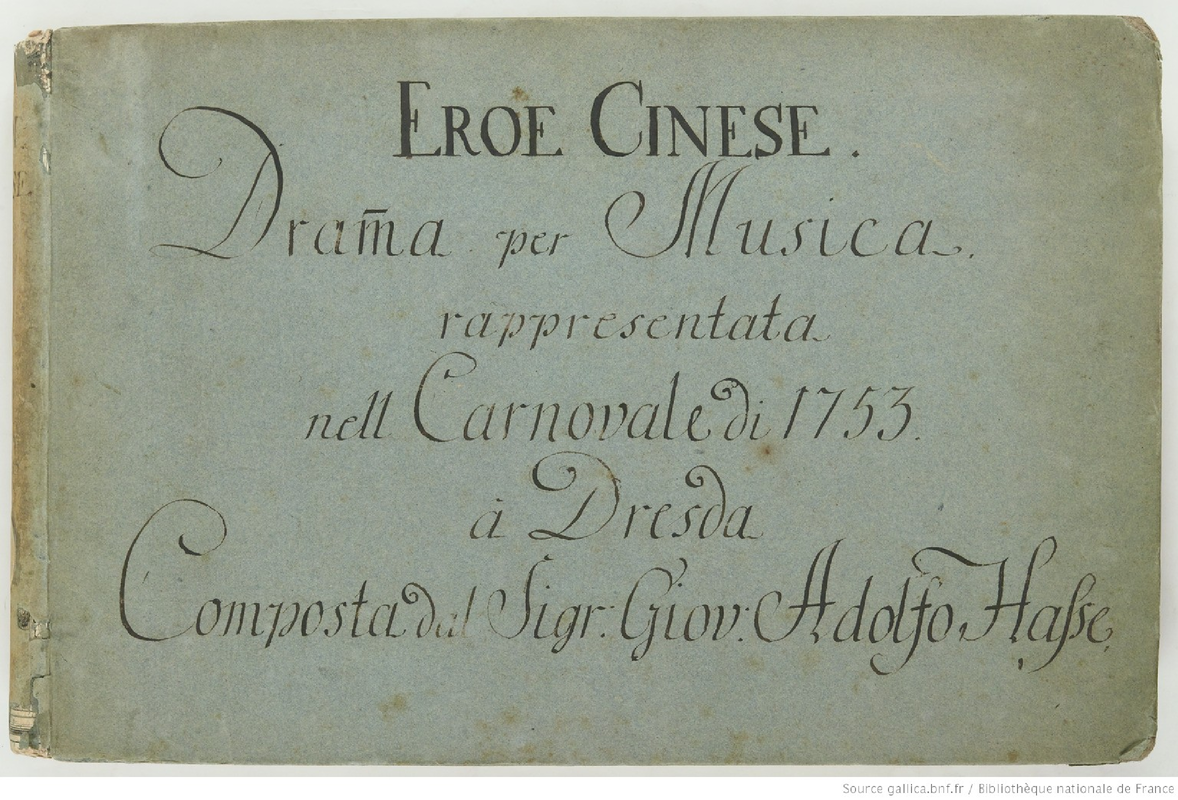 EROE CINESE.
Dram̄a per Musica.
rappresentata
nell Carnovale di 1753.
à Dresda
Composta dal Sigr: Giov: Adolfo Haſse,
Source gallica.bnf.fr / Bibliothèque nationale de France